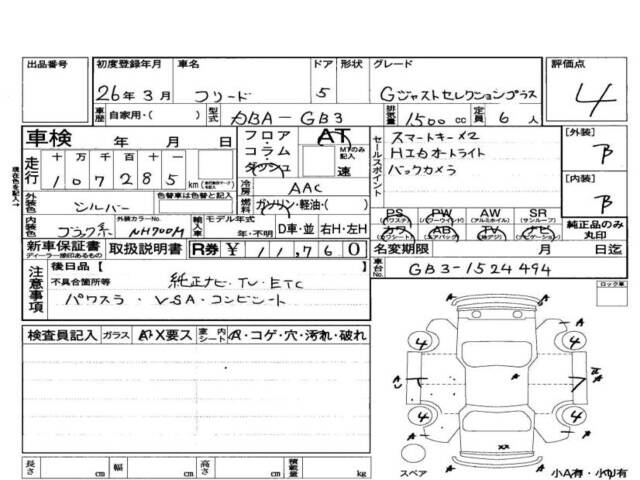 出品番号 初度登録年月 車名 ドア 形状 グレード 評価点
26年3月 フリード 5 Gジャストセレクションプラス 4
車歴 自家用・( ) 型式 DBA-GB3 排気量 1500cc 定員 6人
車検 年 月 日 フロア・コラム・ダッシュ AT MTのみ記入 速
セールスポイント スマートキー×2
HIDオートライト
バックカメラ
[外装] B
[内装] B
走行 十 万 千 百 十 一
107285 km
冷房 AAC
外装色 シルバー 色替車は色替と記入 燃料 ガソリン・軽油・( )
内装色 ブラック系 外装カラーNo. NH700M 輸入車 モデル年式 年・不明 D車・並 右H・左H
PS (パワステ) PW (パワーウインド) AW (アルミホイル) SR (サンルーフ)
カワ (カワシート) AB (エアバッグ) TV (地デジ) ナビ (ナビゲーション)
純正品のみ丸印
新車保証書 ディーラー捺印あるもの 取扱説明書 R券 ¥11,760 名変期限 月 日迄
車台No. GB3-1524494
注意事項 後日品【 】
不具合箇所等 純正ナビ・TV・ETC
パワスラ・VSA・コンビシート
ロック車
検査員記入 ガラス A・X要ス 室内シート A・コゲ・穴・汚れ・破れ
長さ cm 幅 cm 高さ cm 積載量 kg
4 4
4 4
スペア 小A有・小U有